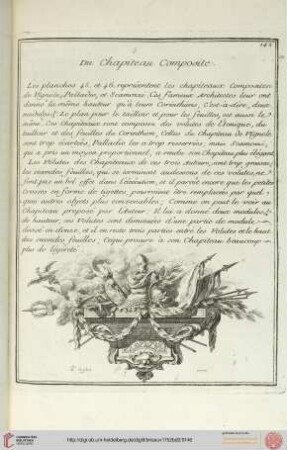 Du Chapiteau Composite.
Les planches 45. et 46. representent les chapiteaux Composites
de Vignole, Palladio, et Scamozzi; Ces fameux Architectes leur ont
donné la même hauteur qu'a leurs Corinthiens, C'est-à-dire, deux
modules
Le plan pour le tailloir et pour les feuilles, est aussi le
même, Ces Chapiteaux sont composés des volutes de l'Ionique, du
tailloir et des feuilles du Corinthien, Celles du Chapiteau de Vignole
sont trop écartées, Palladio les a trop resserrées, mais Scamozzi,
qui a pris un moyen proportionnel, a rendu son Chapiteau plus élégant.
Les Volutes des Chapiteaux de ces trois Auteurs, sont trop grosses,
les grandes feuilles, qui se terminent audessous de ces volutes, ne
font pas un bel effet dans l'execution, et il paroit encore que les petites
en forme de pourroient être remplacées par quel-
que autres objets plus convenables; Comme on peut le voir au
Chapiteau proposé par l'Auteur; Il lui a donné deux modules
de hauteur, ses Volutes sont diminuées d'une partie de module,
divisé en douze, et il en reste trois parties entre les Volutes et le haut
des grandes feuilles; Ce qui procure à son Chapiteau beaucoup
plus de légereté.
http://digi.ub.uni-heidelberg.de/diglit/briseux1752bd2/0146